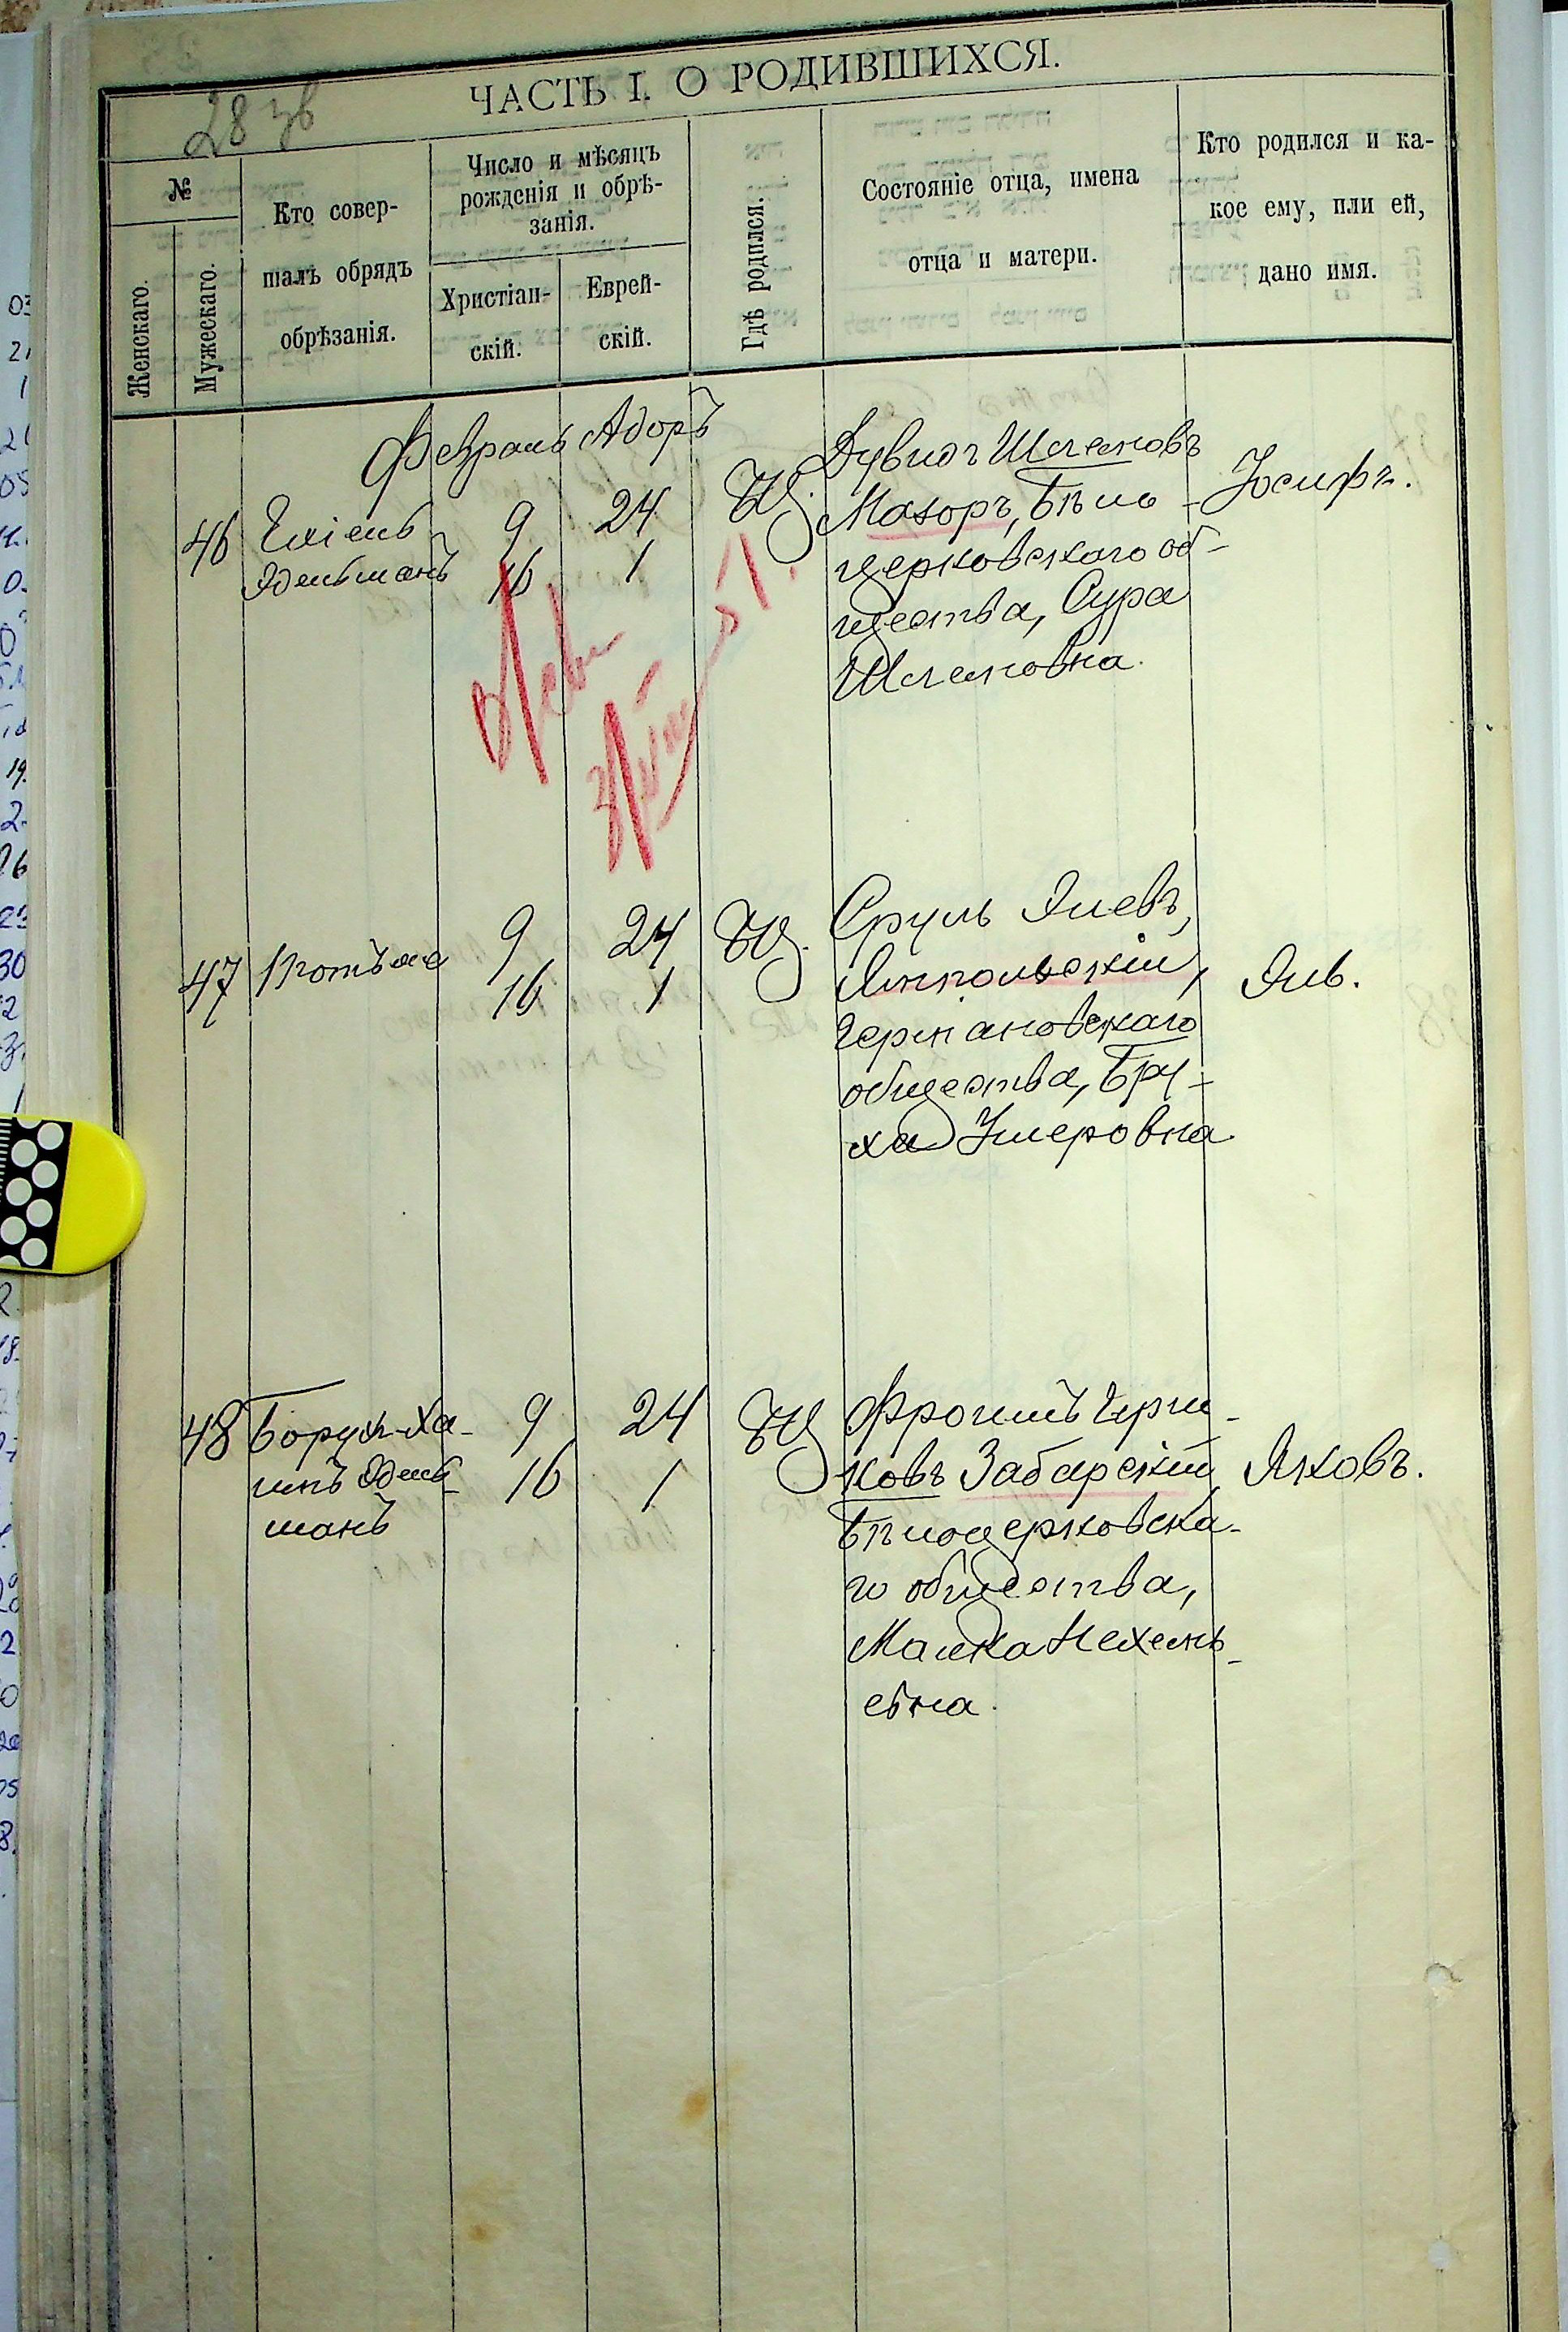 ЧАСТЬ I. О РОДИВШИХСЯ.
28 зв
№
Женскаго.
Мужескаго.
Кто совер-
шалъ обрядъ
обрѣзанія.
Число и мѣсяцъ
рожденія и обрѣ-
занія.
Христіан-
скій.
Еврей-
скій.
Гдѣ родился.
Состояніе отца, имена
отца и матери.
Кто родился и ка-
кое ему, или ей,
дано имя.
Февраль Адоръ
46
Эдельманъ
9 24
16 1
Дувидъ Шлемовъ
Мазоръ, Бѣло-
церковскаго об-
щества, Сура
Шлемовна.
Іосифъ.
47
Тотъ же
9 24
16 1
Сруль Янкел
Ямпольскій,
общества, Бру-
ха Умеровна.
48
Борухъ-Ха-
имъ Эдель-
манъ
9 24
16 1
Фроимъ
ковъ Забарскій
Бѣлоцерковска-
го общества,
Малка Нехемь-
евна.
Яковъ.